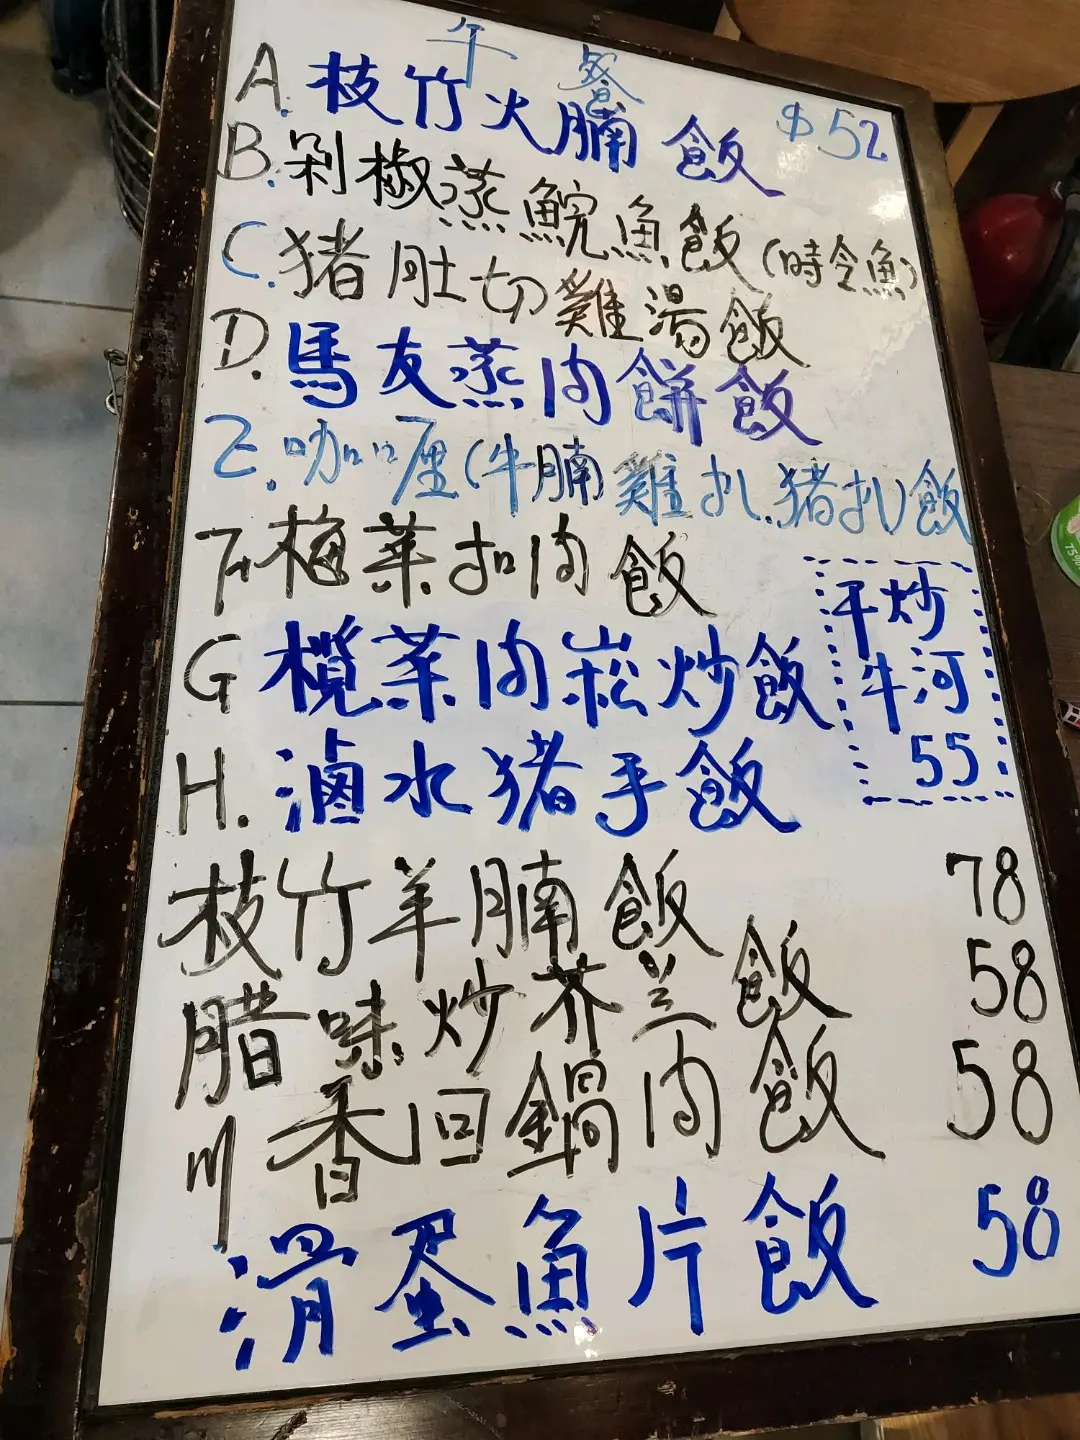 午餐 $52
A. 枝竹火腩飯
B. 剁椒蒸鯇魚飯(時令魚)
C. 猪肚切雞湯飯
D. 馬友蒸肉餅飯
E. 咖喱(牛腩雞扒.猪扒飯
F. 梅菜扣肉飯
G 欖菜肉崧炒飯
H. 滷水猪手飯
干炒
牛河
55
枝竹羊腩飯 78
腊味炒芥兰飯 58
川香回鍋肉飯 58
滑蛋魚片飯 58
75%